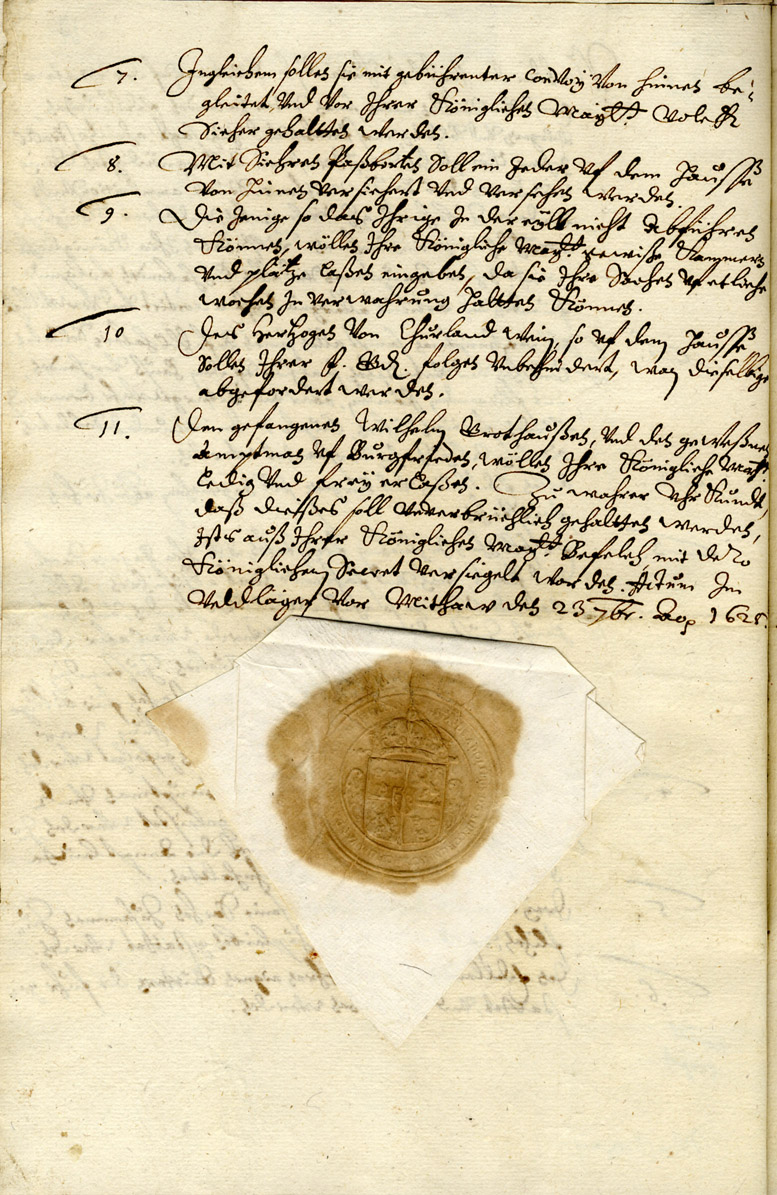 7. Ingleichem sollen sie mit gebührenter Convoy Von hinnen be-
gleitet, Vnd Vor Ihrer Königlichen Maytt: Volckh
Sicher gehaltten werden.
8. Mit Sichren Paßborten Soll ein Jeder Vf dem Hausse
Von hinnen Versichert Vnd Versehen werden.
9. Die Jenige so das Ihrige In der eyll nicht Abführen
Können, wöllen Ihre Königliche Maytt: gewisse Kammern
Vnd plätze laßen eingeben, da sie Ihre Sachen Vf etliche
wochen In Verwahrung haltten Können.
10 Des Hertzogen Von Churland Wein, so Vf dem Hausse
Sollen Ihrer f. Gd. folgen Vnbehindert, wan dieselbige
abgefordert werden.
11. Den gefangenen Wilhelm Brothaußen, Vnd den geweßnen
Amptman Vf Burgfrieden, wöllen Ihre Königliche Maytt:
ledig Vnd frey erlaßen. Zu wahrer Vhrkundt,
daß dießes soll Vnverbrüchlich gehaltten werden,
Ists auß Ihrer Königlichen Maytt: Befelch, mit dero
Königlichem Secret Versiegelt worden. Actum Im
Veldläger Vor Mithaw den 23 7br. Ao 1625.